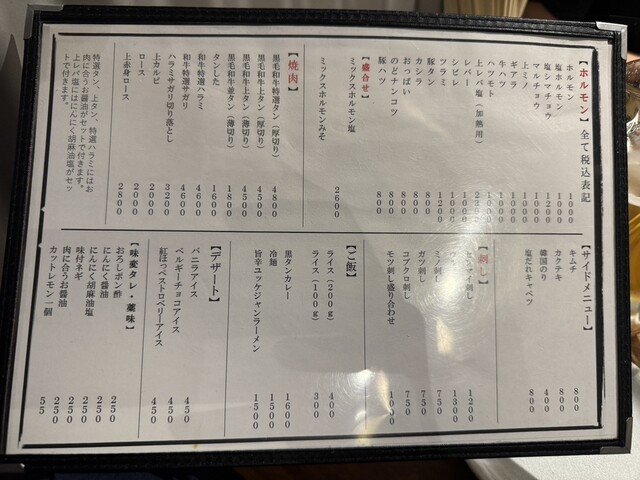 【ホルモン】全て税込表記
ホルモン 1000
塩ホルモン 1000
塩シマチョウ 1200
マルチョウ 1000
上ミノ 1000
ギアラ 1000
牛ハツ 1000
ハツモト 1000
上レバ塩（加熱用）
レバー 1000
シビレ 1000
ツラミ 1200
豚タン 800
カシラ 800
おっぱい 800
のどナンコツ 800
豚ハツ 800
【盛合せ】
ミックスホルモン塩
ミックスホルモンみそ 2600
【焼肉】
黒毛和牛特選タン（厚切り） 4800
黒毛和牛上タン（厚切り） 4500
黒毛和牛上タン（薄切り） 4500
黒毛和牛並タン（薄切り） 1800
タンした 1600
和牛特選ハラミ 4600
和牛特選サガリ 4600
ハラミサガリ切り落とし 3200
上カルビ 2000
ロース 2000
上赤身ロース 2800
特選タン、上タン、特選ハラミにはお
肉に合うお醤油がセットで付きます。
上レバ塩にはにんにく胡麻油塩がセッ
トで付きます。
【サイドメニュー】
キムチ 800
カクテキ 800
韓国のり 400
塩だれキャベツ 800
刺し】
マイ刺し 1200
1300
ミノ刺し 750
ガツ刺し 750
コブクロ刺し 750
モツ刺し盛り合わせ
【ご飯】
ライス（200g） 400
ライス（100g） 300
黒タンカレー 1600
冷麺 1500
旨辛ユッケジャンラーメン 1500
【デザート】
バニラアイス 450
ベルギーチョコアイス 450
紅ほっぺストロベリーアイス 450
【味変タレ・薬味】
おろしポン酢 250
にんにく醤油 250
にんにく胡麻油塩 250
味付ネギ 250
肉に合うお醤油 250
カットレモン一個 55